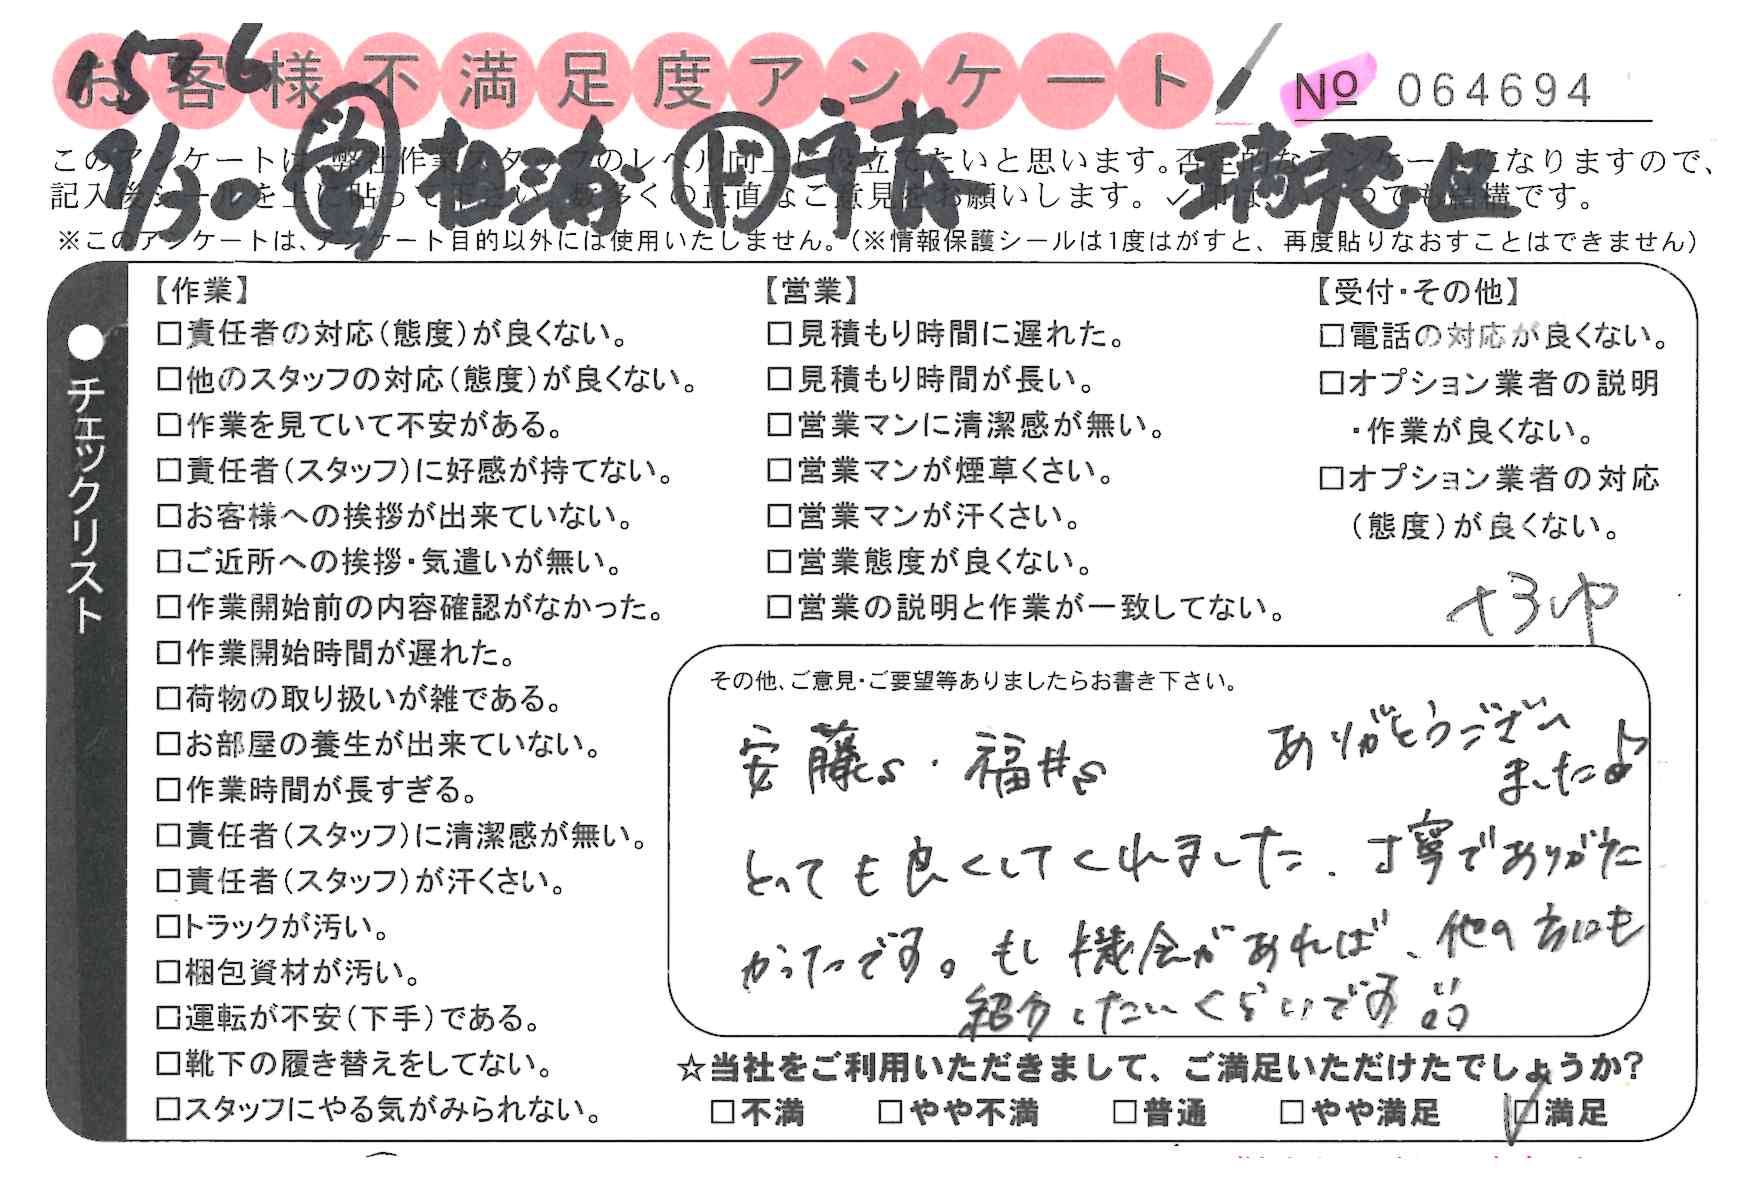 1576
お客様不満足度アンケート
No 064694
7/30 相浦 市内 瑞穂区
このアンケートは、弊社作業スタッフのレベル向上に役立てたいと思います。否定的なアンケートになりますので、
記入後シールを上に貼って下さい。数多くの正直なご意見をお願いします。✓印は、いくつでも結構です。
※このアンケートは、アンケート目的以外には使用いたしません。(※情報保護シールは1度はがすと、再度貼りなおすことはできません)
●チェックリスト
【作業】
□責任者の対応(態度)が良くない。
□他のスタッフの対応(態度)が良くない。
□作業を見ていて不安がある。
□責任者(スタッフ)に好感が持てない。
□お客様への挨拶が出来ていない。
□ご近所への挨拶・気遣いが無い。
□作業開始前の内容確認がなかった。
□作業開始時間が遅れた。
□荷物の取り扱いが雑である。
□お部屋の養生が出来ていない。
□作業時間が長すぎる。
□責任者(スタッフ)に清潔感が無い。
□責任者(スタッフ)が汗くさい。
□トラックが汚い。
□梱包資材が汚い。
□運転が不安(下手)である。
□靴下の履き替えをしてない。
□スタッフにやる気がみられない。
【営業】
□見積もり時間に遅れた。
□見積もり時間が長い。
□営業マンに清潔感が無い。
□営業マンが煙草くさい。
□営業マンが汗くさい。
□営業態度が良くない。
□営業の説明と作業が一致してない。
【受付・その他】
□電話の対応が良くない。
□オプション業者の説明
・作業が良くない。
□オプション業者の対応
(態度)が良くない。
その他、ご意見・ご要望等ありましたらお書き下さい。
安藤s・福井s ありがとうござい
ました♪
とっても良くしてくれました、丁寧でありがた
かったです。もし機会があれば、他の方にも
紹介したいくらいです
☆当社をご利用いただきまして、ご満足いただけたでしょうか?
□不満 □やや不満 □普通 □やや満足 ☑満足